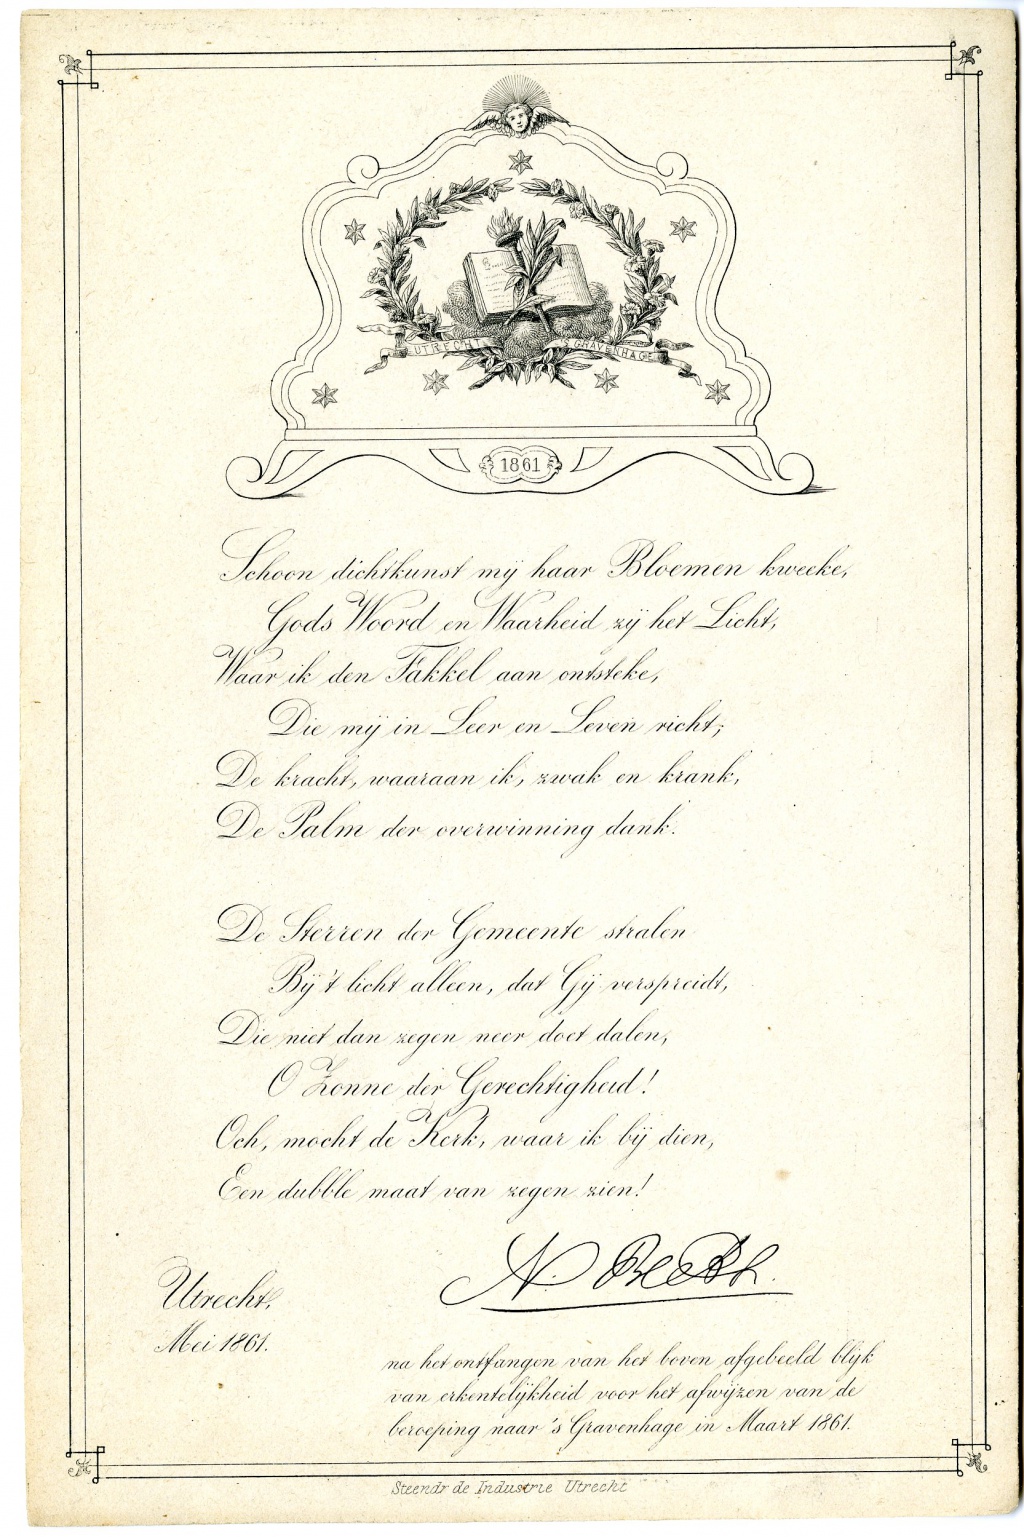 UTRECHT
S GRAVENHAGE
1861
Schoon dichtkunst mij haar Bloemen kweeke,
Gods Woord en Waarheid zij het Licht,
Waar ik den Fakkel aan ontsteke,
Die mij in Leer en Leven richt;
De kracht, waaraan ik, zwak en krank,
De Palm der overwinning dank.
De Sterren der Gemeente stralen
Bij 't licht alleen, dat Gij verspreidt,
Die niet dan zegen neer doet dalen,
O Zonne der Gerechtigheid!
Och, mocht de Kerk, waar ik bij dien,
Een dubble maat van zegen zien!
N. Beets.
Utrecht,
Mei 1861.
na het ontfangen van het boven afgebeeld blijk
van erkentelijkheid voor het afwijzen van de
beroeping naar 's Gravenhage in Maart 1861.
Steendr de Industrie Utrecht